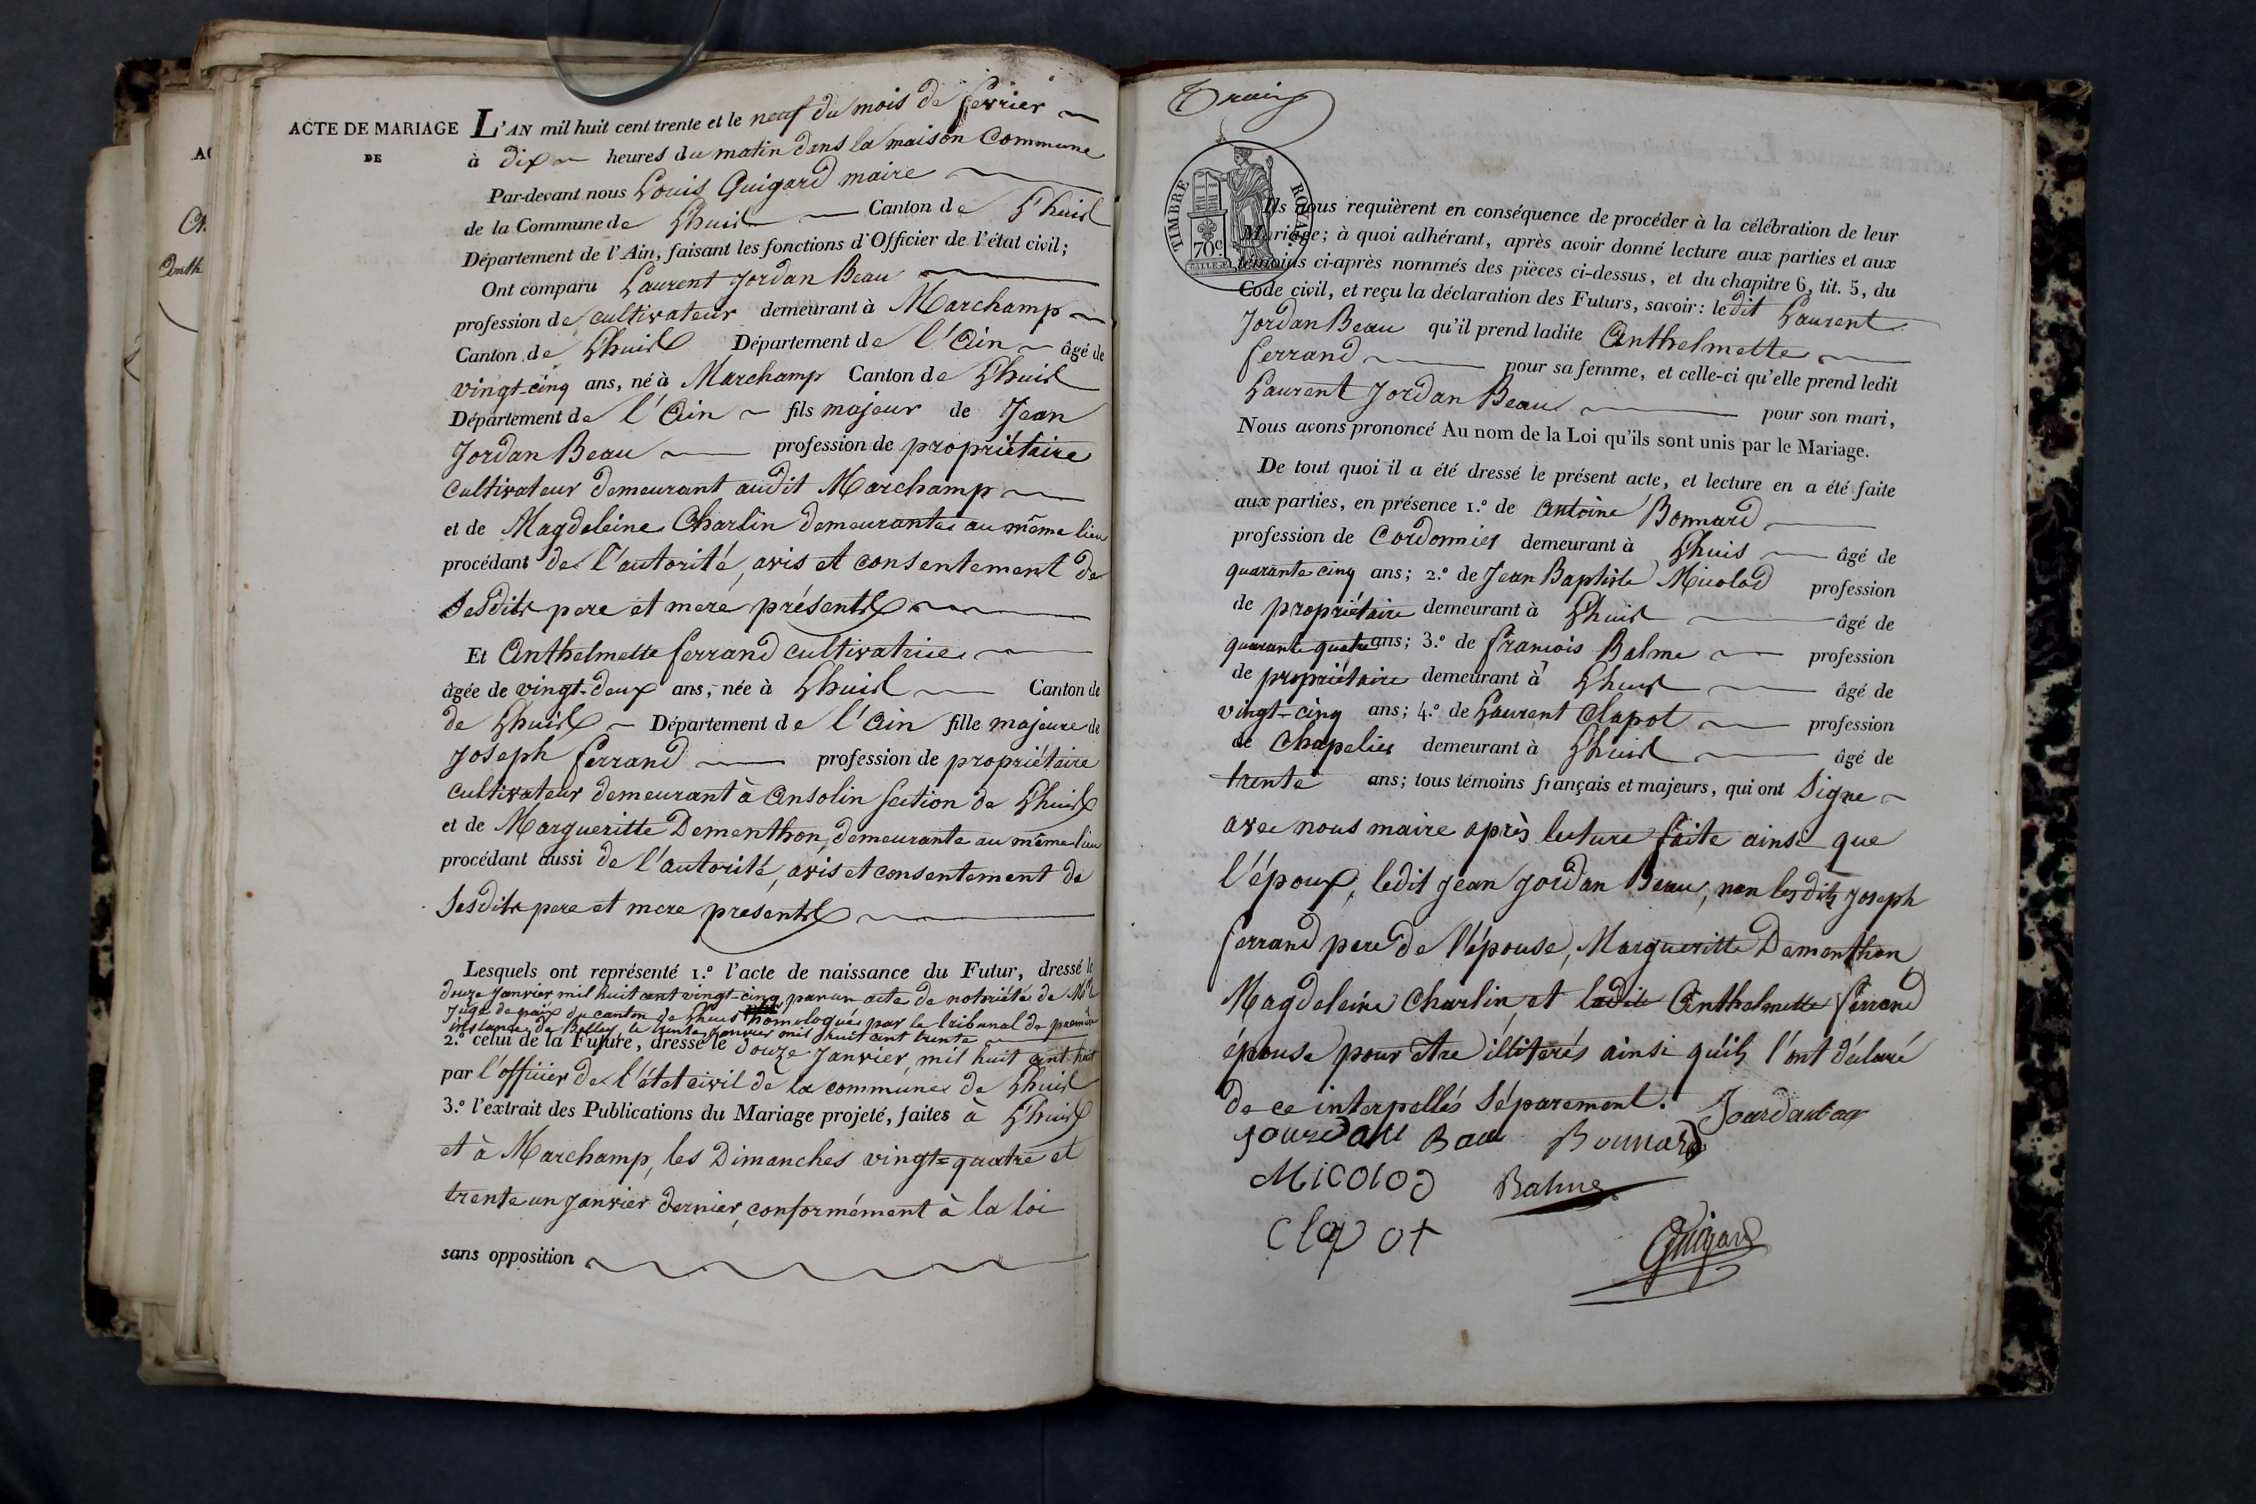 ACTE DE MARIAGE
DE
L'AN mil huit cent trente et le neuf du mois de fevrier
à dix heures du matin dans la maison Commune
Par-devant nous Louis Guigard maire
de la Commune de Lhuis Canton de Lhuis
Département de l'Ain, faisant les fonctions d'Officier de l'état civil;
Ont comparu Laurent Jordan Beau
profession de cultivateur demeurant à Marchamp
Canton de Lhuis Département de l'Ain âgé de
vingt-cinq ans, né à Marchamp Canton de Lhuis
Département de l'Ain fils majeur de Jean
Jordan Beau profession de propriétaire
cultivateur demeurant audit Marchamp
et de Magdeleine Charlin demeurante au même lieu
procédant de l'autorité, avis et consentement de
sesdits pere et mere présents
Et Anthelmette ferrand cultivatrice
âgée de vingt-deux ans, née à Lhuis Canton de
de Lhuis Département de l'Ain fille majeure de
Joseph ferrand profession de propriétaire
cultivateur demeurant à Ansolin section de Lhuis
et de Margueritte Dementhon, demeurante au même lieu
procédant aussi de l'autorité, avis et consentement de
sesdits pere et mere presents
Lesquels ont représenté 1.º l'acte de naissance du Futur, dressé le
douze Janvier mil huit cent vingt-cinq par un acte de notoriété de Mr le
Juge de paix du canton de Lhuis homologué par le tribunal de premiere
instance de Belley, le trente Janvier mil huit cent trente
2.º celui de la Future, dressé le douze Janvier mil huit cent huit
par l'officier de l'état civil de la commune de Lhuis
3.º l'extrait des Publications du Mariage projeté, faites à Lhuis
et à Marchamp, les Dimanches vingt-quatre et
trente un Janvier dernier, conformément à la loi
sans opposition
TIMBRE ROYAL
70c
Ils nous requièrent en conséquence de procéder à la célébration de leur
Mariage; à quoi adhérant, après avoir donné lecture aux parties et aux
témoins ci-après nommés des pièces ci-dessus, et du chapitre 6, tit. 5, du
Code civil, et reçu la déclaration des Futurs, savoir: ledit Laurent
Jordan Beau qu'il prend ladite Anthelmette
ferrand pour sa femme, et celle-ci qu'elle prend ledit
Laurent Jordan Beau pour son mari,
Nous avons prononcé Au nom de la Loi qu'ils sont unis par le Mariage.
De tout quoi il a été dressé le présent acte, et lecture en a été faite
aux parties, en présence 1.º de Antoine Bonnard
profession de Cordonnier demeurant à Lhuis âgé de
quarante cinq ans; 2.º de Jean Baptiste Micolod profession
de propriétaire demeurant à Lhuis âgé de
quarante quatre ans; 3.º de françois Balme profession
de propriétaire demeurant à Lhuis âgé de
vingt-cinq ans; 4.º de Laurent Clapot profession
de Chapelier demeurant à Lhuis âgé de
trente ans; tous témoins français et majeurs, qui ont signe
avec nous maire après lecture faite ainsi que
l'époux, ledit Jean Jordan Beau, non lesdits Joseph
ferrand pere de l'épouse, Margueritte Dementhon
Magdeleine Charlin, et ladite Anthelmette ferrand
épouse pour être illiterés ainsi qu'ils l'ont déclaré
de ce interpellés séparement.
Jourdan Bau Bonnard
Micolod Balme
Clapot Guigard